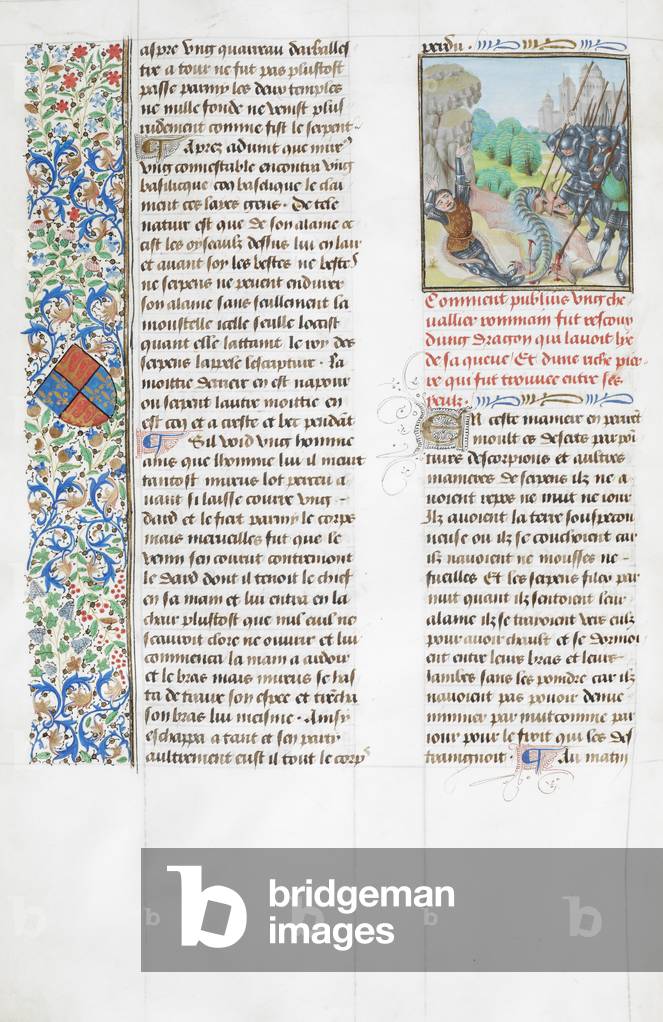 aspre ung quarreau darbales
tre a tour ne fut pas plustost
passe parmy les deux temples
ne nulle fonde ne venist plus
rudement comme fist le serpent
Aprez advint que mur
ung connestable encontra ung
basilicque coq baselique le clai
ment ces laies gens. De tele
nature est que de son alaine oc
cist les oyseaulx dessus lui en lair
et avant soy les bestes ne bestes
ne serpens ne peuent endurer
son alaine sans seullement la
moustelle icelle seulle loccist
quant elle lattaint le roy des
serpens lappele lescripture. La
moittie derriere en est
ou serpent lautre moittie en
est coq et a creste et bec pendant
Sil void ung homme
ains que lhomme lui il meurt
tantost murus lot perceu a
uant si laisse courre ung
dard et le fiert parmy le corps
mais merveilles fut que le
venin sen courut contremont
le dard dont il tenoit le chief
en sa main et lui entra en la
chair plustost que nul euil ne
scauroit clore ne ouvrir et lui
commenca la main a ardoir
et le bras mais murus se has
ta de traire son espee et trencha
son bras lui meisme. Ainsy
eschappa a tant et sen party
aultrement eust il tout le corps
perdu.
Comment publius ung che
vallier rommain fut rescoux
dung dragon qui lavoit lye
de sa queue / Et dune riche pier
re qui fut trouvee entre ses
yeulx.
En ceste maniere en perirent
moult ces desers par poin
tures descorpions et aultres
manieres de serpens ilz ne a
voient repos ne nuit ne iour
Ilz avoient la terre souspecon
neuse ou ilz se couchoient car
ilz navoient ne mousses ne
fueilles Et les serpens par
nuit quant ilz sentoient leur
alaine ilz se traioient vers eulx
pour avoir chault et se dormoi
ent entre leurs bras et leurs
iambes sans les poindre car ilz
navoient pas povoir denve
nimer par nuit comme par
iour pour le froit qui les des
traingnoit. Au matin
bridgeman
images